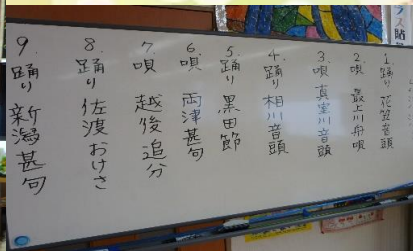 1. 踊り 花笠音頭
2. 唄 最上川舟唄
3. 唄 真室川音頭
4. 踊り 相川音頭
5. 踊り 黒田節
6. 唄 両津甚句
7. 唄 越後追分
8. 踊り 佐渡おけさ
9. 踊り 新潟甚句